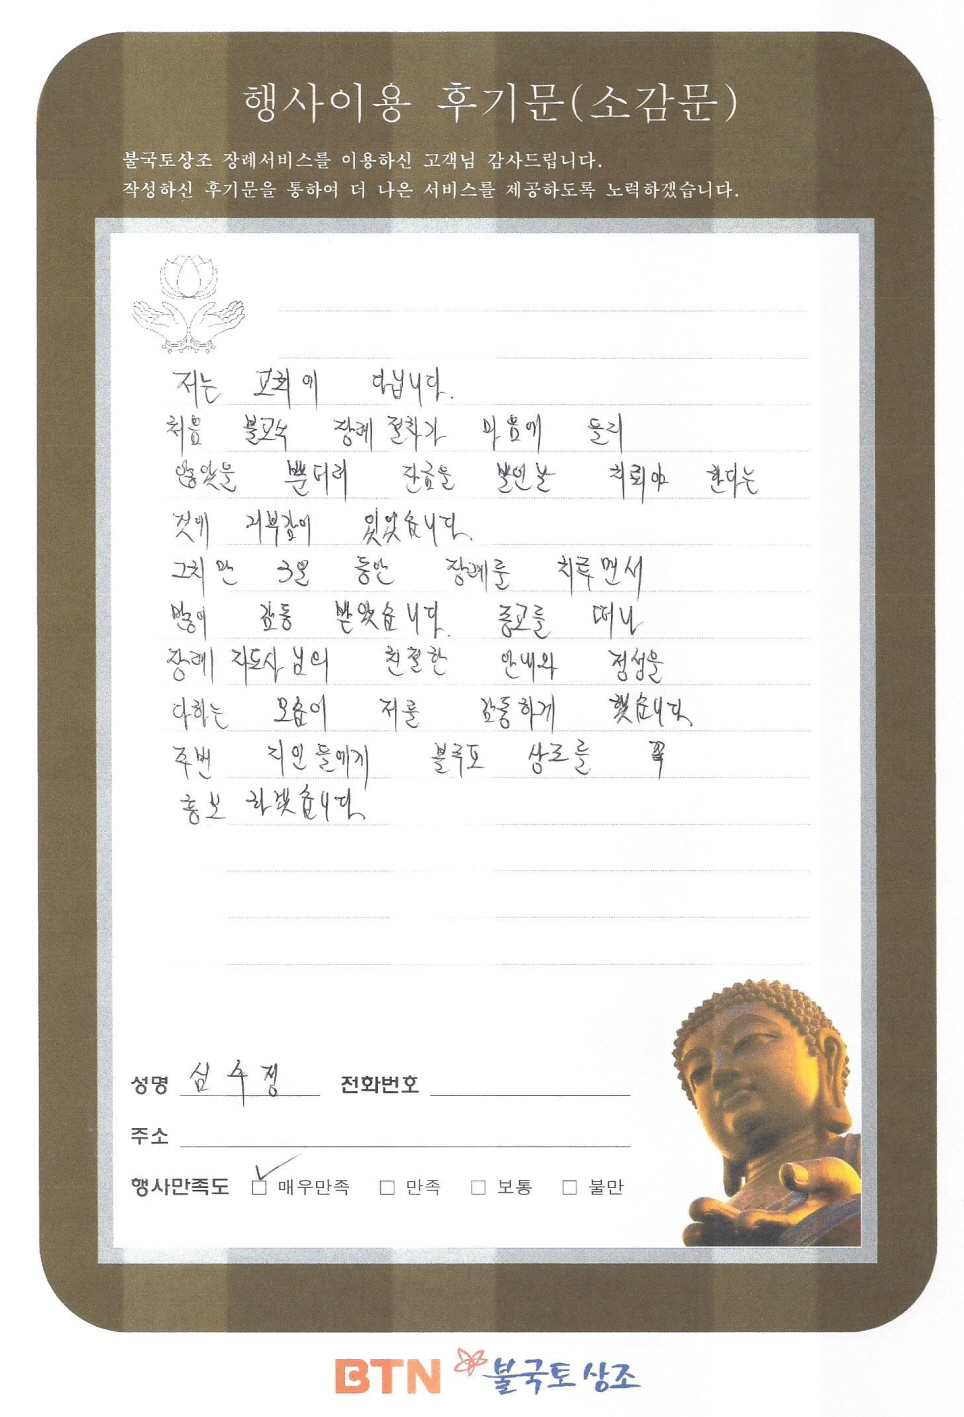 행사이용 후기문(소감문)
불국토상조 장례서비스를 이용하신 고객님 감사드립니다.
작성하신 후기문을 통하여 더 나은 서비스를 제공하도록 노력하겠습니다.
저는 교회에 다닙니다.
처음 불교식 장례 절차가 마음에 들지
않았을 뿐더러 잔금을 발인날 치뤄야 한다는
것에 거부감이 있었습니다.
그치만 3일 동안 장례를 치루면서
많이 감동 받았습니다. 종교를 떠나
장례 지도사님의 친절한 안내와 정성을
다하는 모습이 저를 감동하게 했습니다.
주변 지인들에게 불국토 상조를 꼭
홍보 하겠습니다.
성명 심수정 전화번호
주소
행사만족도 ✓ 매우만족 □ 만족 □ 보통 □ 불만
BTN 불국토상조